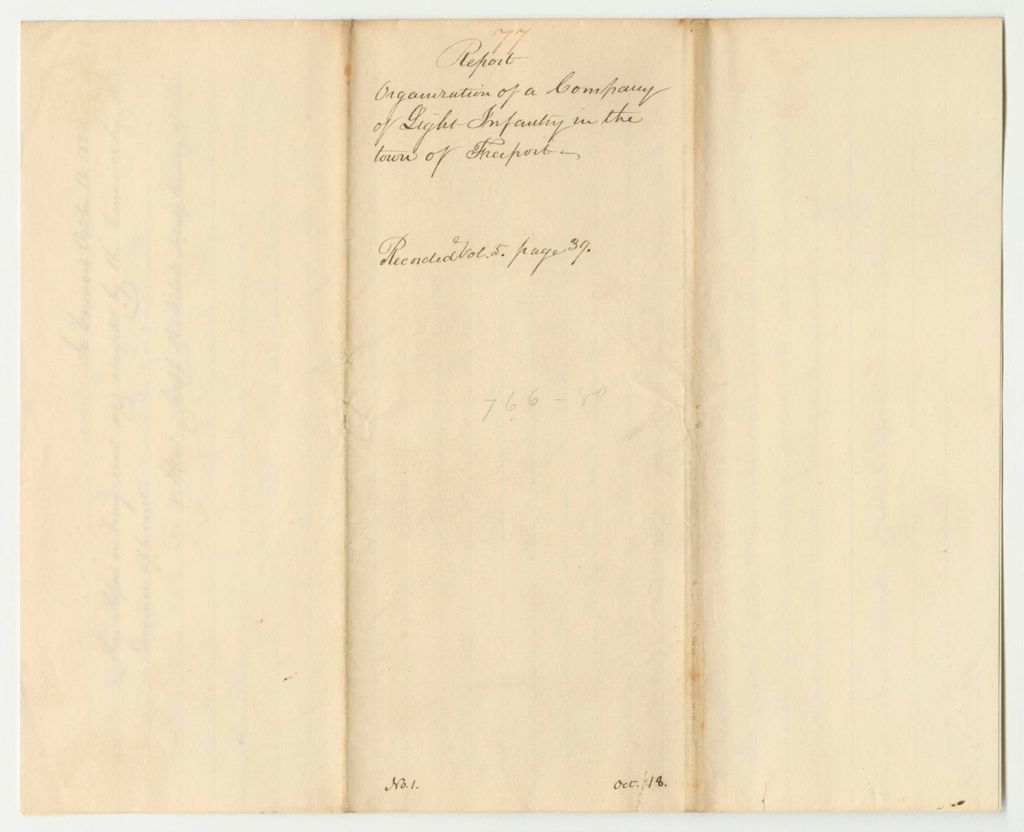 77
Report
Organization of a Company
of Light Infantry in the
town of Freeport
Recorded Vol. 5. page 39.
766 - 80
No. 1.
Oct. 18.